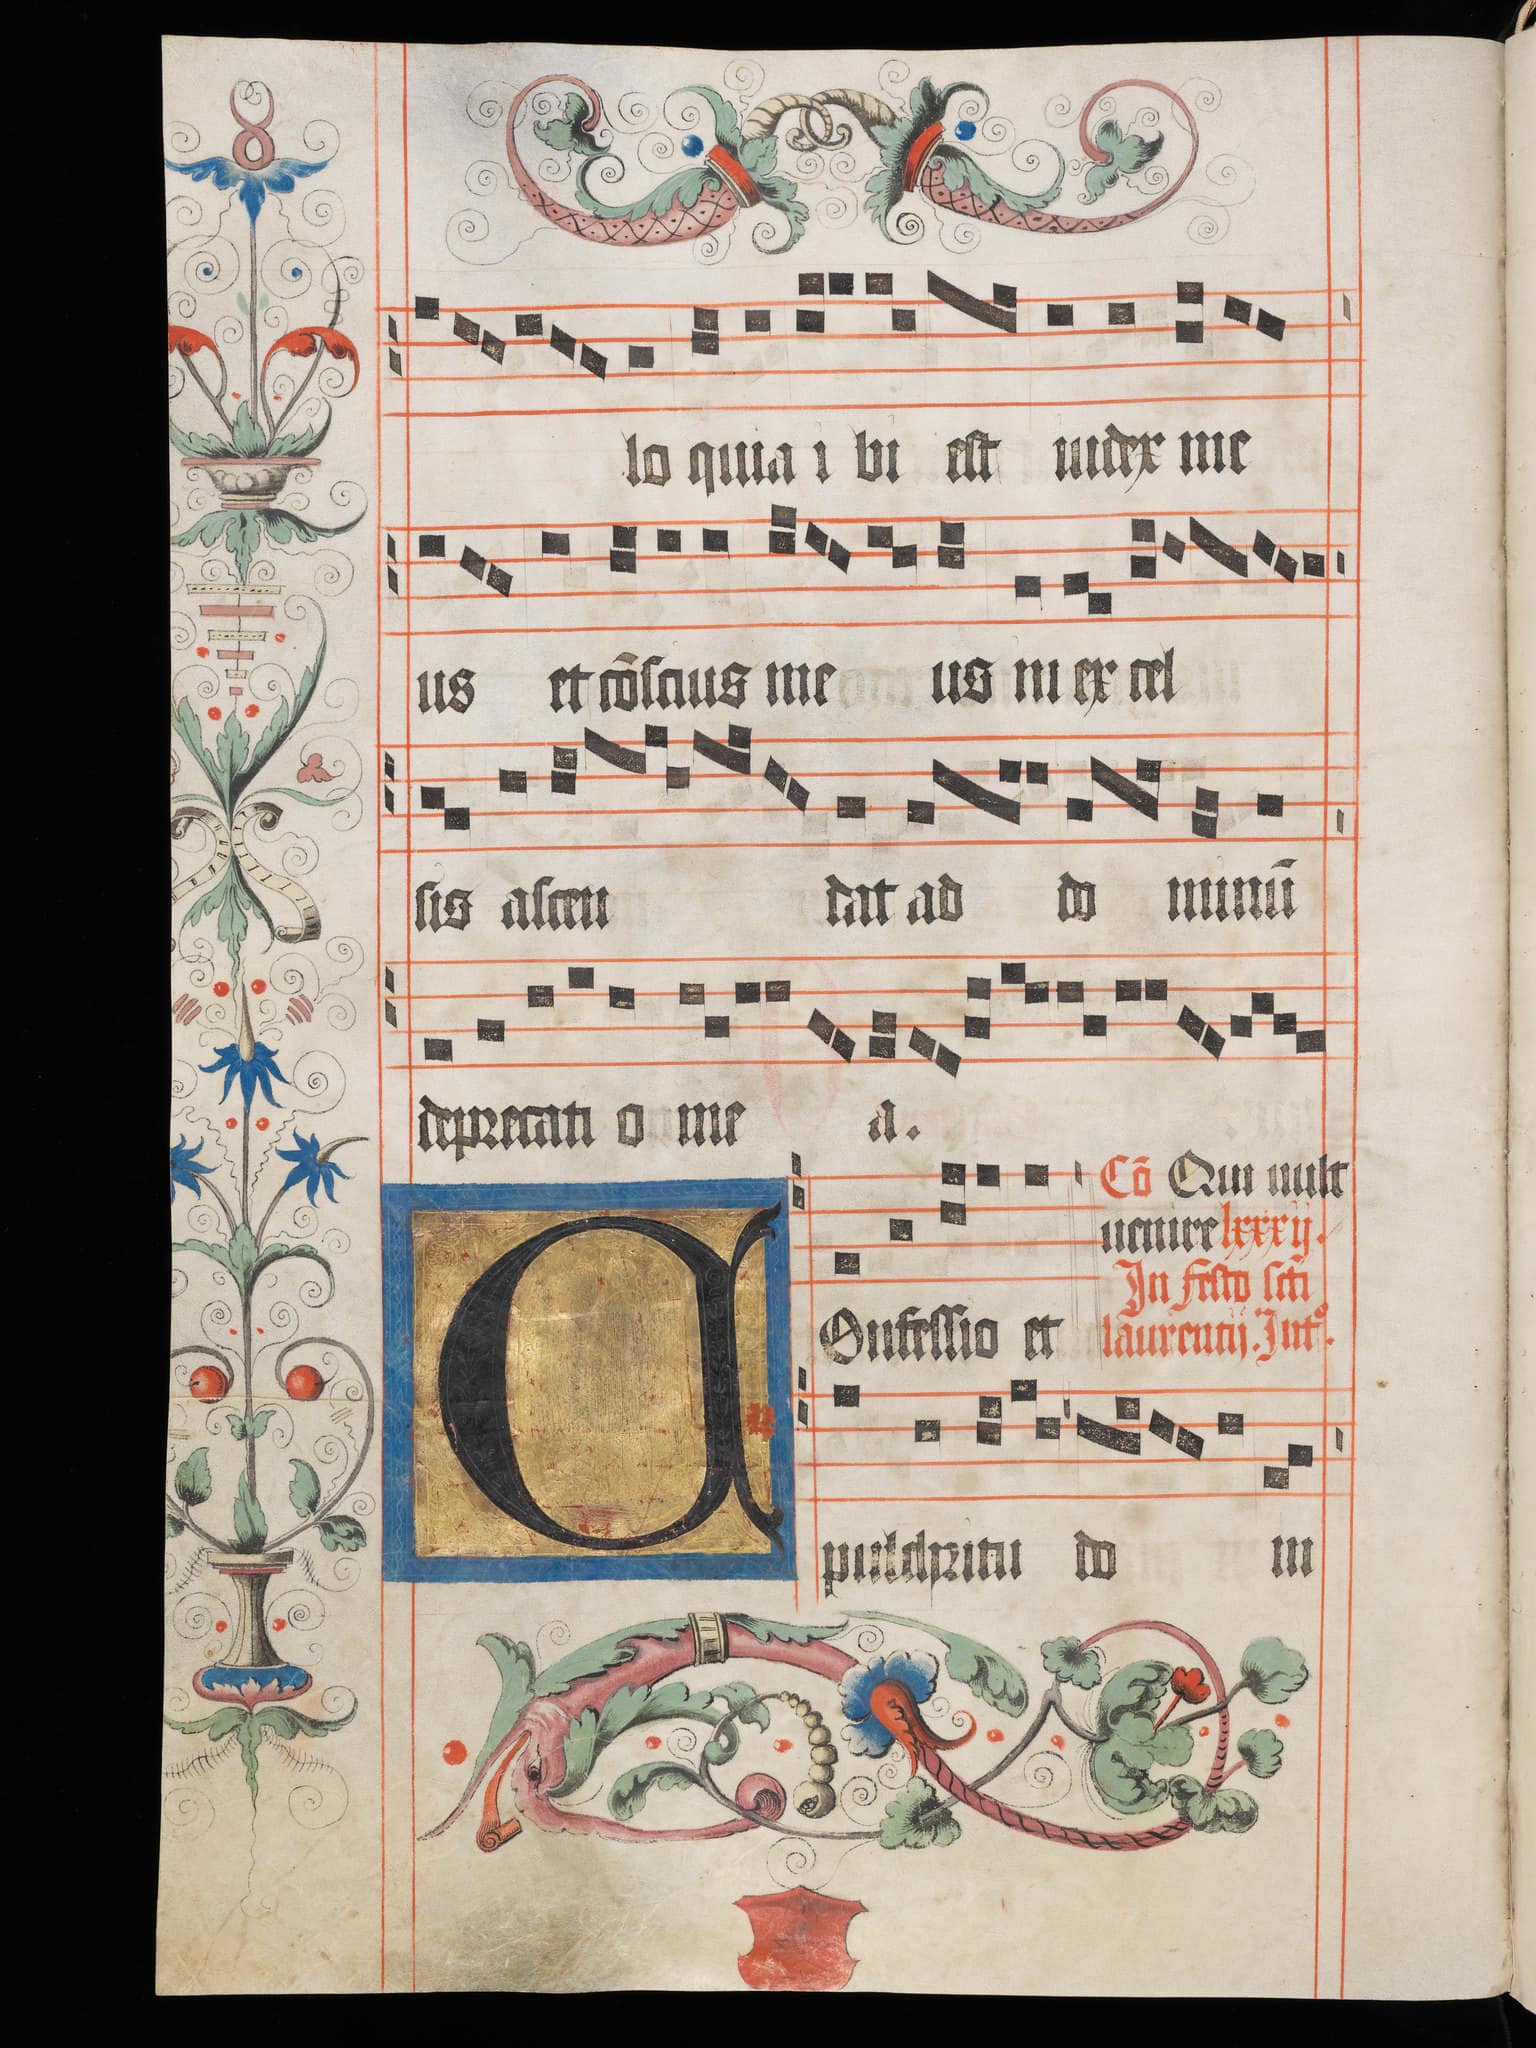 lo quia i bi est iudex me
us et cōscius me us in ex cel
sis ascen dat ad do minū
deprecati o me a.
Cō Qui vult
venire lxxxij.
In festo scti
laurentij. Intº.
COnfessio et
pulchritu do in